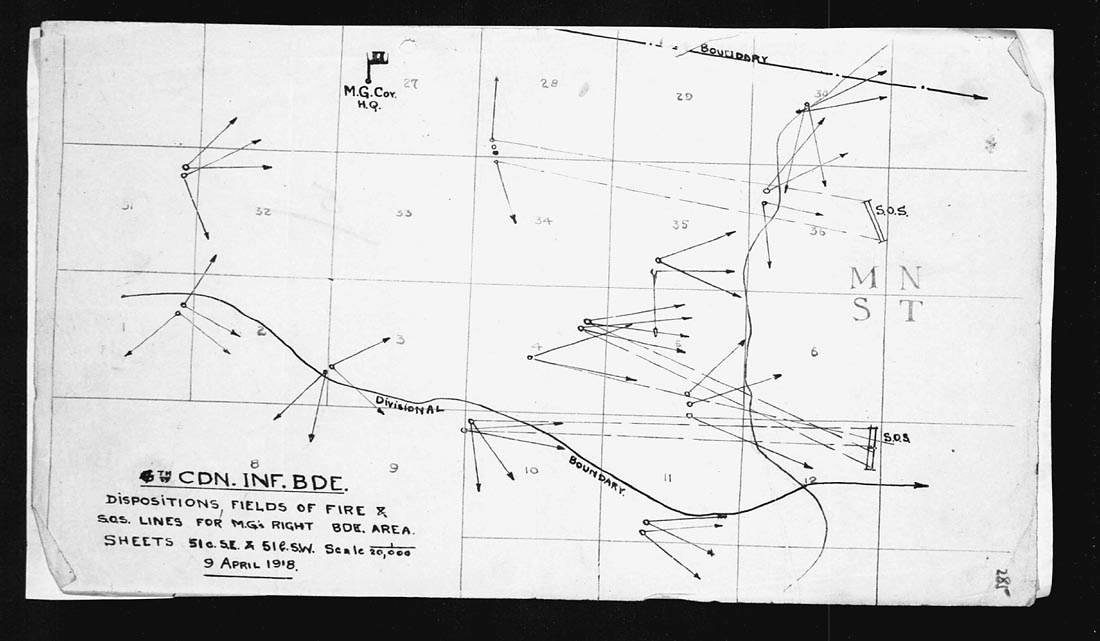 BOUNDARY
M.G. Coy.
H.Q.
27
28
29
30
31
32
33
34
35
36
S.O.S.
M N
S T
1
2
3
4
5
6
DIVISIONAL
BOUNDARY.
S.O.S
8
9
10
11
12
6TH CDN. INF. BDE.
DISPOSITIONS, FIELDS OF FIRE &
S.O.S. LINES FOR M.G's RIGHT BDE. AREA.
SHEETS 51c. S.E. & 51b. S.W. Scale 1/20,000
9 APRIL 1918.
285